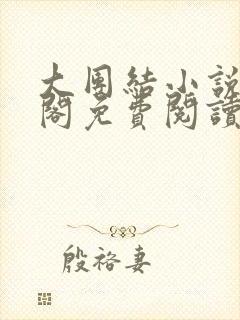 大團結小說
閣免費閱讀
殷裕妻